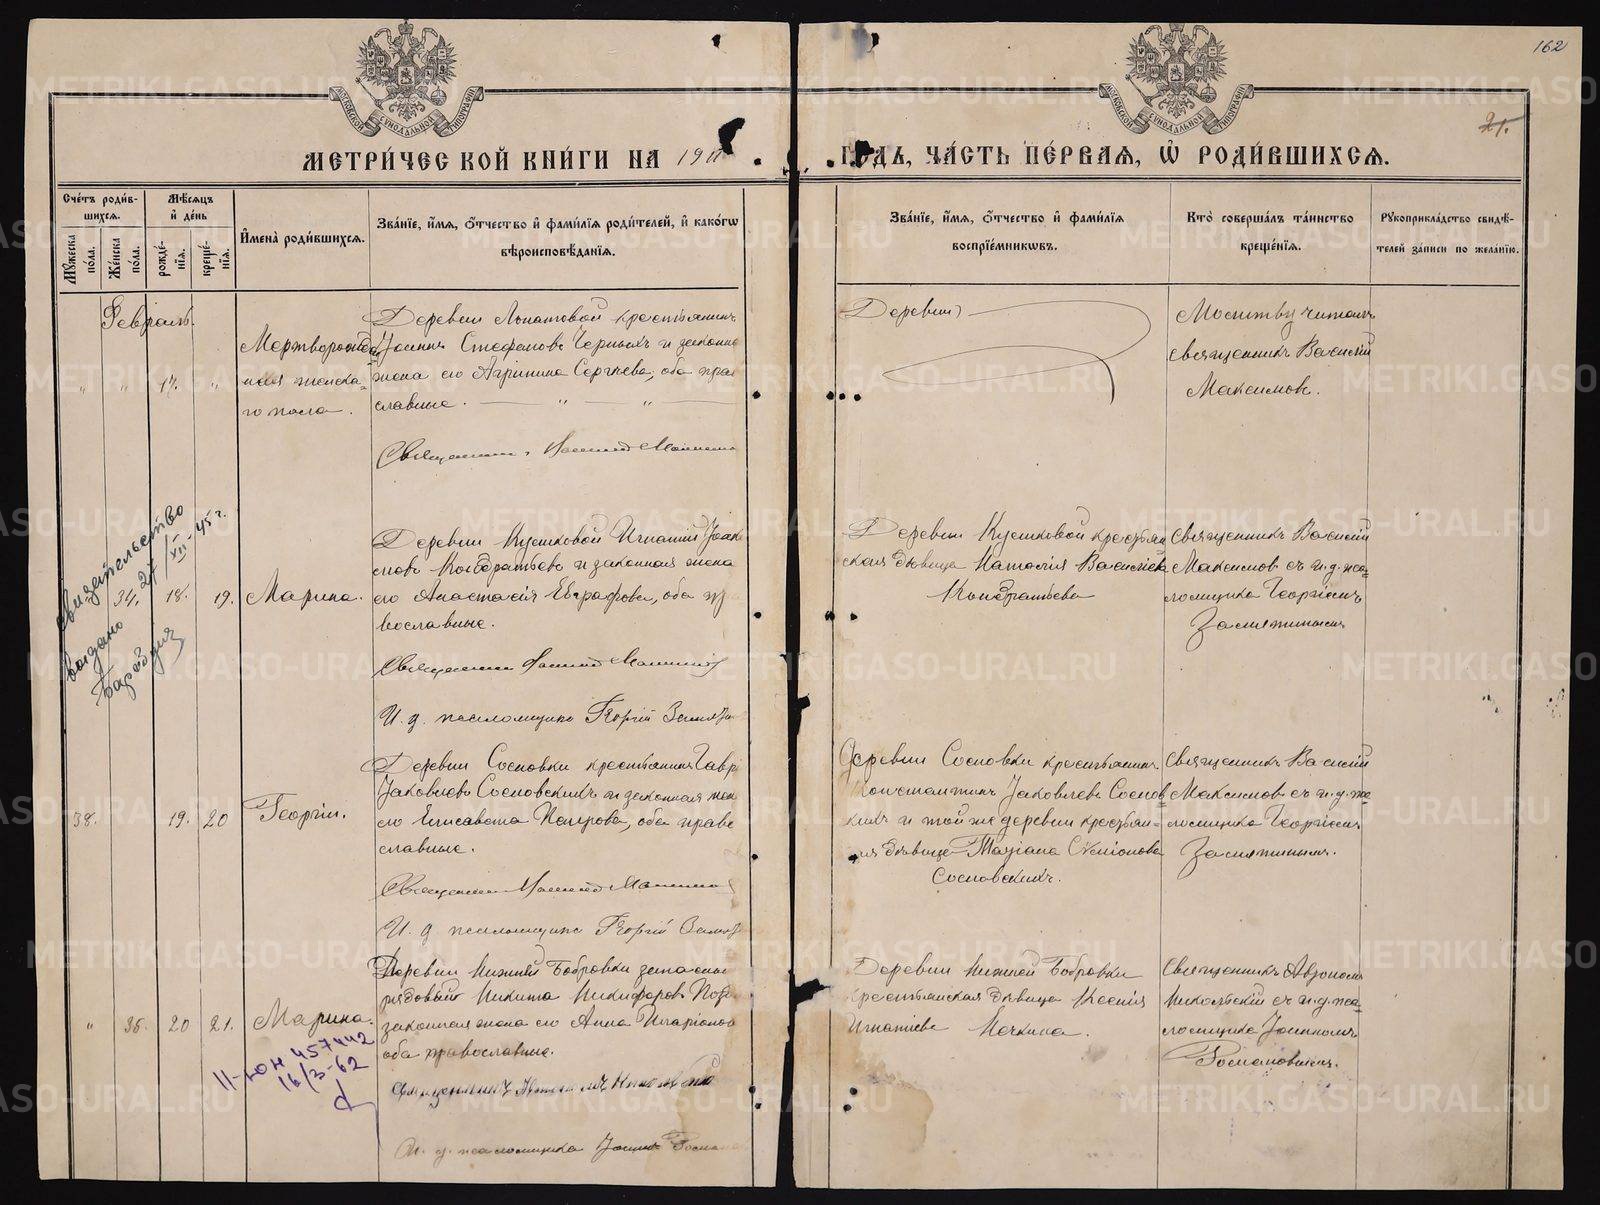 162
21.
МОСКОВСКОЙ СѴНОДАЛЬНОЙ ТИПОГРАФІИ
МОСКОВСКОЙ СѴНОДАЛЬНОЙ ТИПОГРАФІИ
МЕТРИ́ЧЕСКОЙ КНИ́ГИ НА 191
ГОДЪ, ЧА́СТЬ ПЕ́РВАЯ, Ѡ҆ РОДИ́ВШИХСЯ.
Сче́тъ роди́в-
шихся.
Мѣ́сяцъ
и҆ де́нь
Му́жеска по́ла.
Же́нска по́ла.
рожде́-нїя.
креще́-нїя.
И҆мена̀ роди́вшихся.
Зва́нїе, и҆́мя, ѻ҆́тчество и҆ фами́лїя роди́телей, и҆ како́гѡ
вѣроисповѣ́данїя.
Зва́нїе, и҆́мя, ѻ҆́тчество и҆ фами́лїя
воспрїе́мникѡвъ.
Кто̀ соверша́лъ та́инство
креще́нїя.
Рꙋкоприкла́дство свидѣ́-
телей за́писи по жела́нїю.
Февраль.
" " 17. "
Мертворожден
ная женска-
го пола.
Деревни Лопатовой крестьянинъ
Іоаннъ Стефановъ Черныхъ и законна
жена его Агрипина Сергѣева, оба пра
славные. — " — " —
Священникъ Василій Максимов
Деревни
Молитву читалъ
священникъ Василій
Максимовъ.
34. 18. 19.
Марина.
Деревни Кушковой Игнатій Іоак
мовъ Кондратьевъ и законная жена
его Анастасія Евграфова, оба пр
вославные.
Священникъ Василій Максимов
И. д. псаломщика Георгій Замят
Деревни Кушковой крестьян
ская дѣвица Наталія Васильева
Кондратьева
Священникъ Василій
Максимовъ съ и. д. пса-
ломщика Георгіемъ
Замятинымъ
свидетельство
выдано 27/XII-45 г.
38. 19. 20
Георгій.
Деревни Сосновки крестьянинъ Гаврі
Іаковлевъ Сосновскихъ и законная жен
его Елисавета Петрова, оба право
славные.
Священникъ Василій Максимов
И. д. псаломщика Георгій Замят
Деревни Сосновки крестьянинъ
Константинъ Іаковлевъ Соснов-
скихъ и той же деревни крестьян-
ая дѣвица Татіана Симіонова
Сосновскихъ.
Священникъ Василій
Максимовъ съ и. д. пса-
ломщика Георгіемъ
Замятинымъ.
" 35. 20 21.
Марина.
II-ЮН 457442
16/3-62
Деревни Нижней Бобровки запасный
рядовый Никита Никифоровъ
законная жена его Анна Иларіонов
оба православные.
Священникъ Автономъ Никольскій
И. д. псаломщика Іоаннъ Романов
Деревни Нижней Бобровки
крестьянская дѣвица Ксенія
Игнатіева
Священникъ Автономъ
Никольскій съ и. д. пса-
ломщика Іоанномъ
Романовымъ.
METRIKI.GASO-URAL.RU